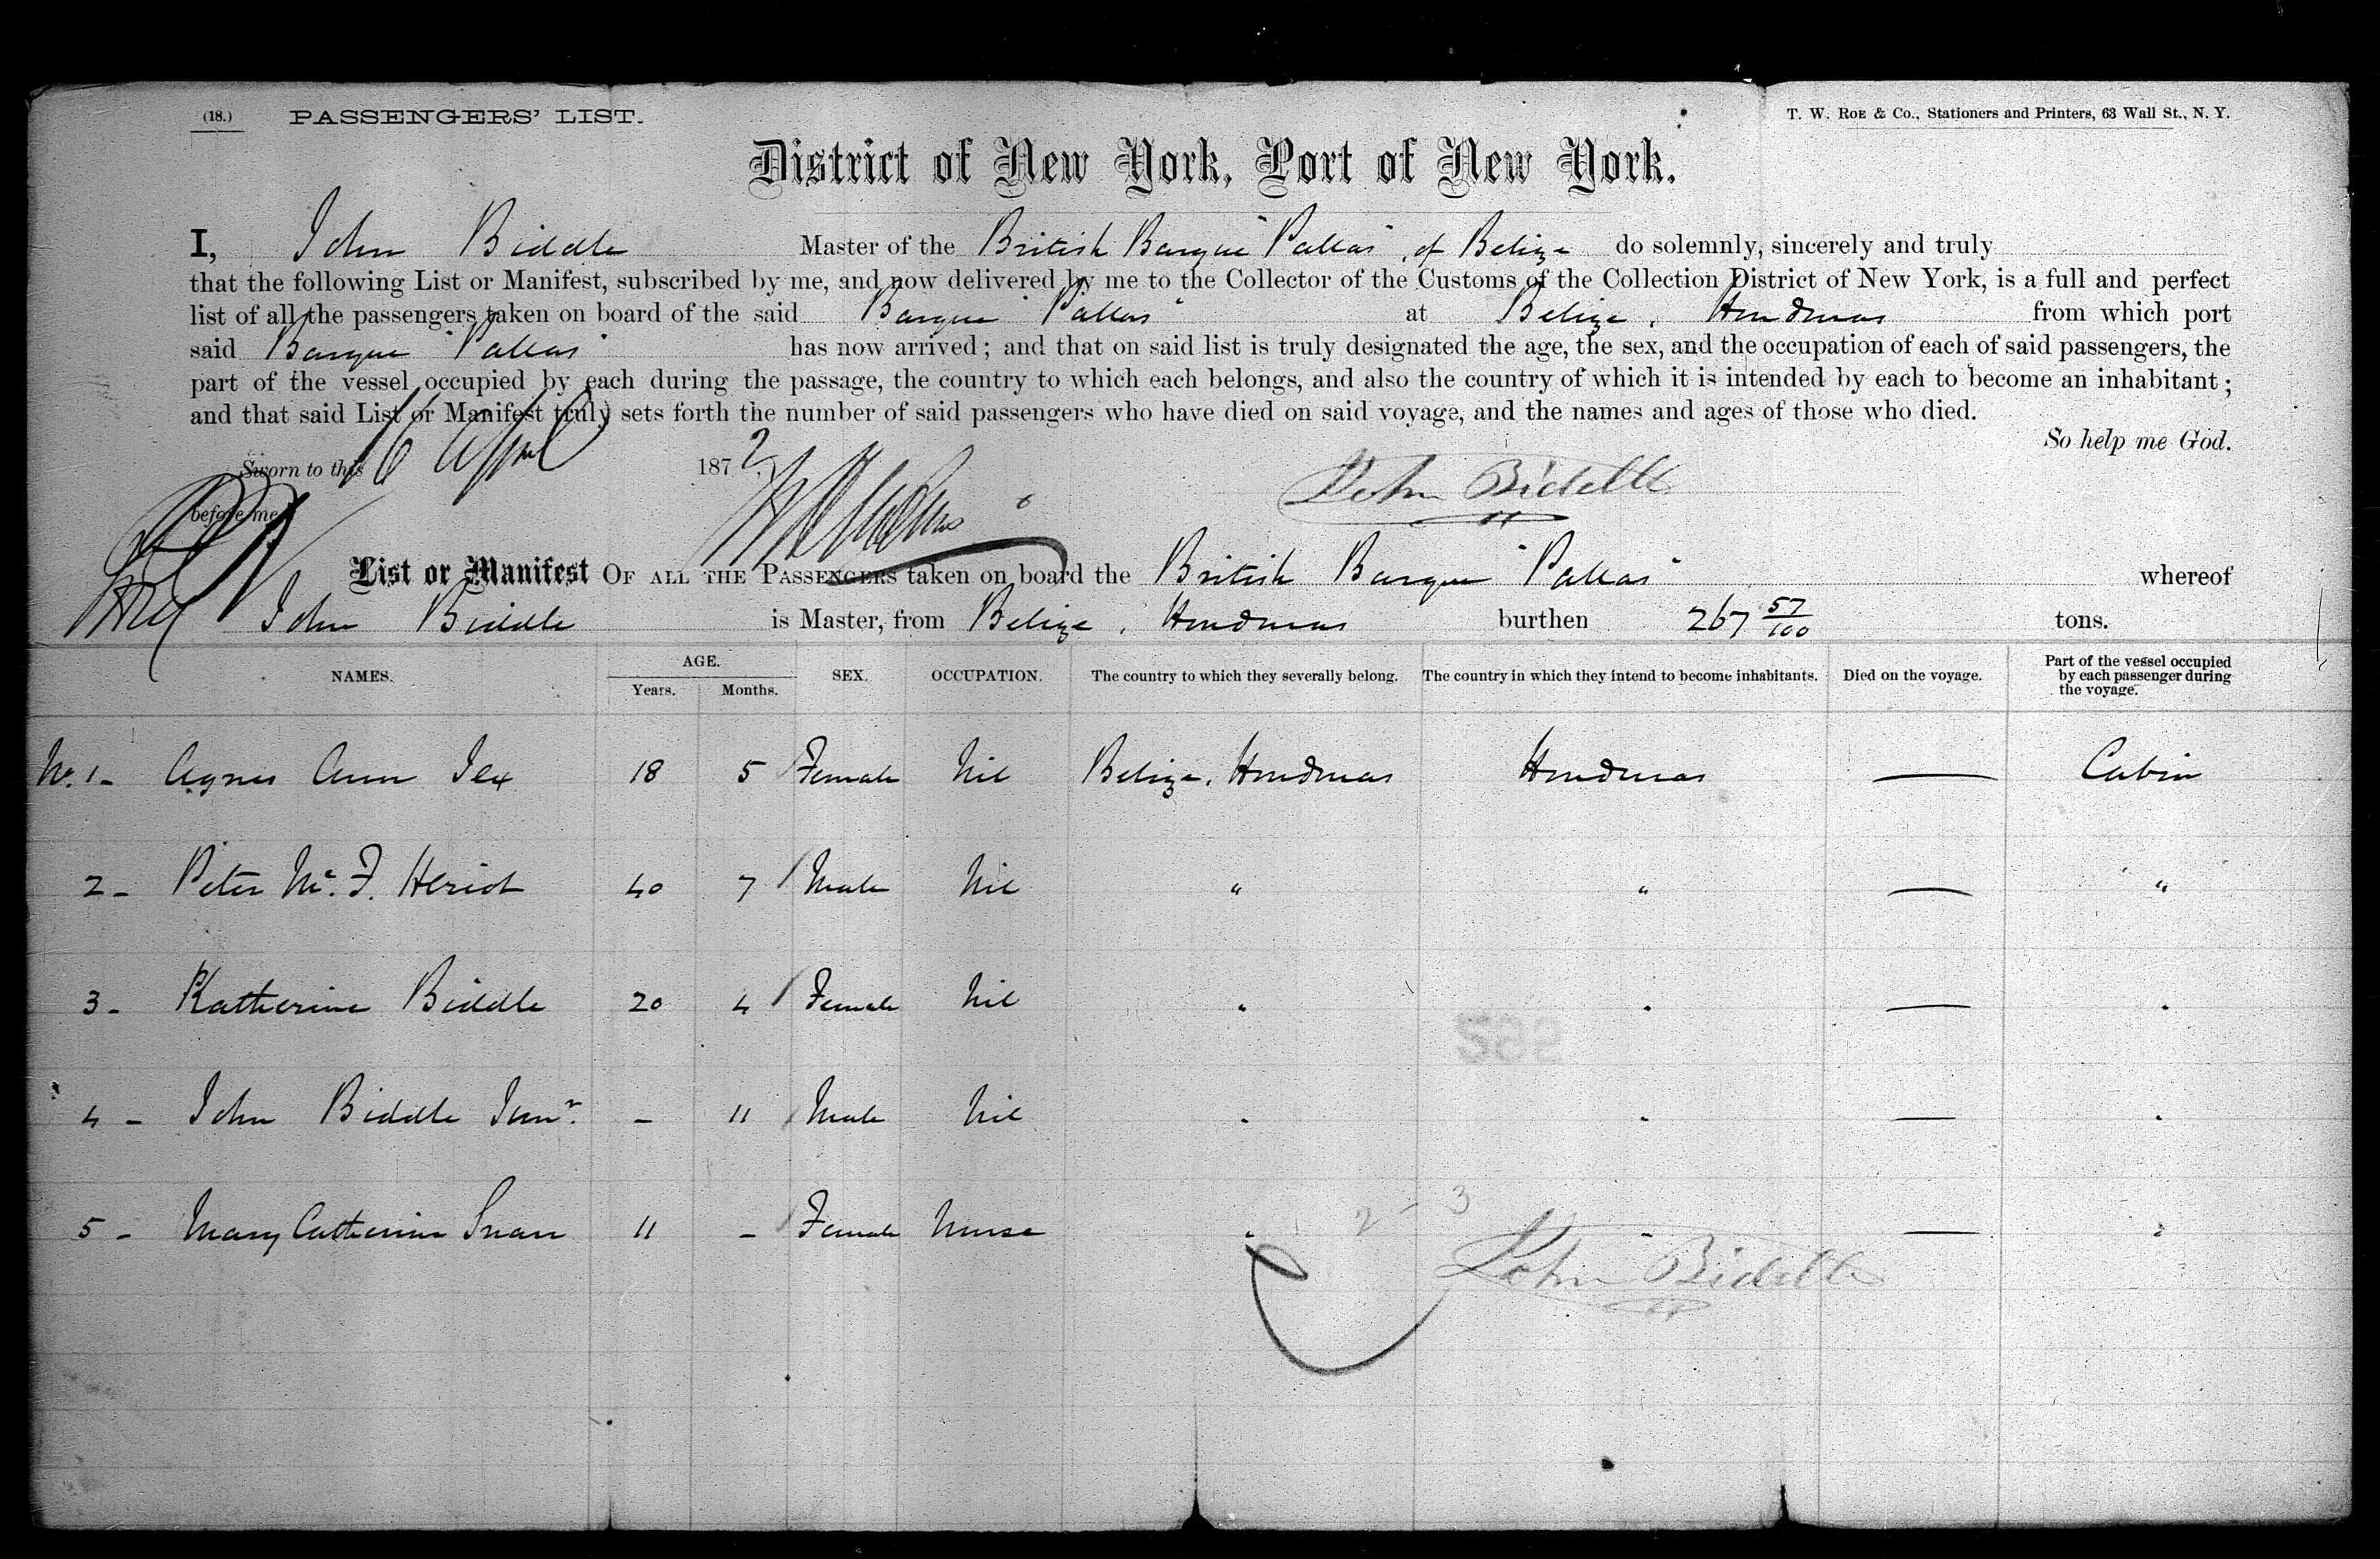 (18.) PASSENGERS' LIST. T. W. Roe & Co., Stationers and Printers, 63 Wall St., N. Y.
District of New York, Port of New York.
I, John Biddle Master of the British Barque "Pallas", of Belize do solemnly, sincerely and truly
that the following List or Manifest, subscribed by me, and now delivered by me to the Collector of the Customs of the Collection District of New York, is a full and perfect
list of all the passengers taken on board of the said Barque "Pallas" at Belize, Honduras from which port
said Barque "Pallas" has now arrived; and that on said list is truly designated the age, the sex, and the occupation of each of said passengers, the
part of the vessel occupied by each during the passage, the country to which each belongs, and also the country of which it is intended by each to become an inhabitant;
and that said List or Manifest truly sets forth the number of said passengers who have died on said voyage, and the names and ages of those who died.
So help me God.
Sworn to this 16 April 1872
John Biddle
before me
List or Manifest OF ALL THE PASSENGERS taken on board the British Barque "Pallas" whereof
John Biddle is Master, from Belize, Honduras burthen 267 57/100 tons.
NAMES. AGE. Years. Months. SEX. OCCUPATION. The country to which they severally belong. The country in which they intend to become inhabitants. Died on the voyage. Part of the vessel occupied by each passenger during the voyage.
No. 1 - Agnes Ann Ilex 18 5 Female Nil Belize, Honduras Honduras — Cabin
2 - Peter Mc. F. Heriot 40 7 Male Nil " " — "
3 - Katherine Biddle 20 4 Female Nil " " — "
4 - John Biddle Junr. - 11 Male Nil " " — "
5 - Mary Catherine 11 - Female Nurse " " — "
2 - 3
John Biddle